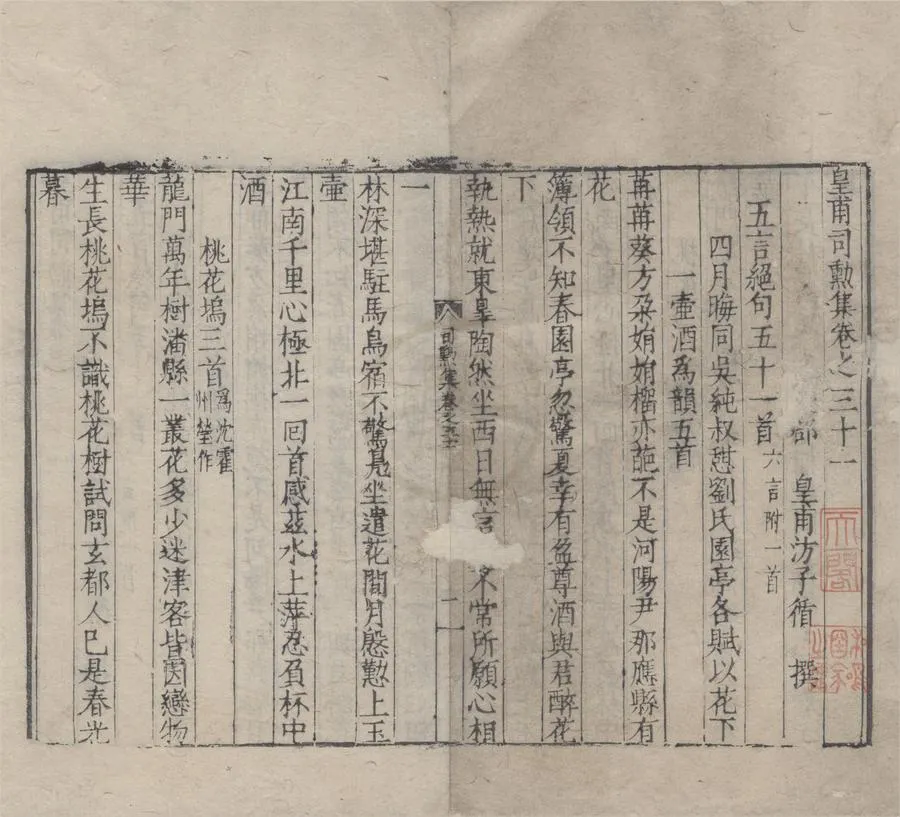 皇甫司勲集卷之三十一
郡 皇甫汸子循 撰
五言絕句五十一首六言附一首
四月晦同吳純叔憇劉氏園亭各賦以花下
一壷酒爲韻五首
苒苒葵方朶娟娟榴亦葩不是河陽尹那應縣有
花
簿領不知春園亭忽驚夏幸有盆尊酒與君醉花
下
執熱就東臯陶然坐西日無言 常所願心相
一
司勲集卷之三十一
一
林深堪駐馬鳥宿不驚凫坐遣花間月慇懃上玉
壷
江南千里心極北一回首感茲水上萍忍負杯中
酒
桃花塢三首爲沈霍
州瑩作
龍門萬年樹潘縣一叢花多少迷津客皆因戀物
華
生長桃花塢不識桃花樹試問玄都人已是春光
暮